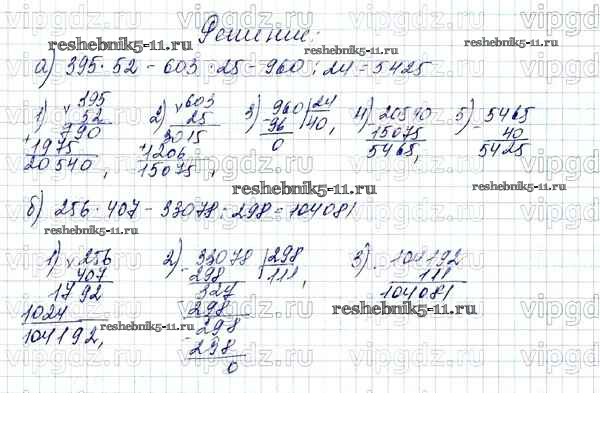 Решение:
а) 395 · 52 - 603 · 25 - 960 : 24 = 5425
1) × 395 2) × 603 3) 960 | 24 4) 20540 5) 5465
52 25 - 96 | 40, - 15075 - 40
790 3015 0 5465, 5425
+ 1975 + 1206
20540, 15075,
б) 256 · 407 - 33078 : 298 = 104081
1) × 256 2) 33078 | 298 3) - 104192
407 - 298 | 111, 111
1792 327 104081
1024 - 298
104192, - 298
298
0
reshebnik5-11.ru
reshebnik5-11.ru
reshebnik5-11.ru
reshebnik5-11.ru
reshebnik5-11.ru
reshebnik5-11.ru
reshebnik5-11.ru
vipgdz.ru